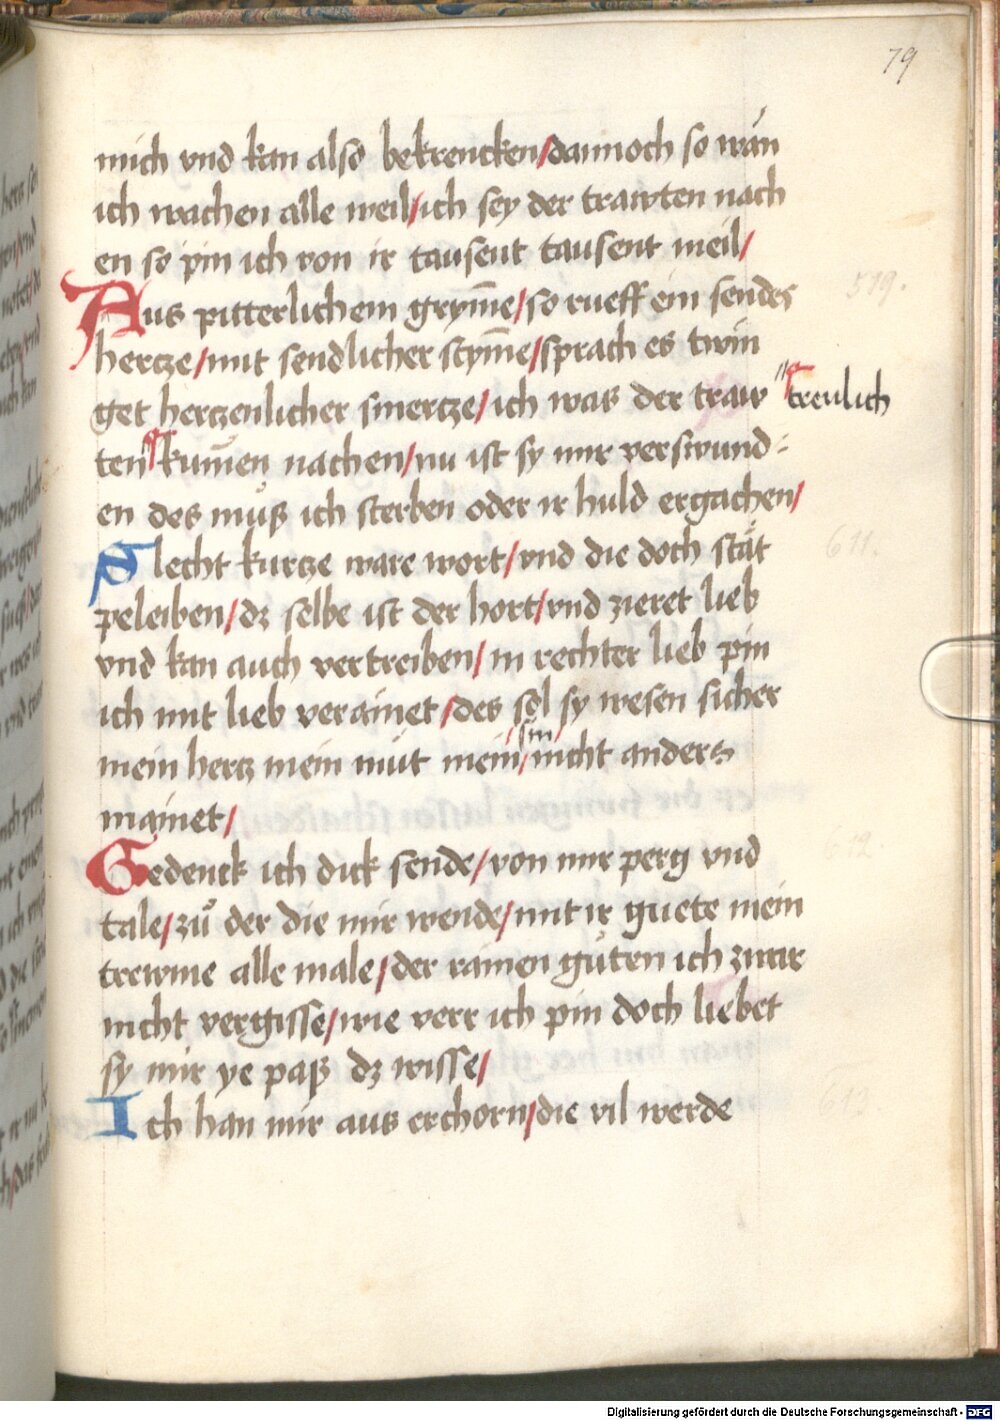 79
mich vnd kan also bekrencken/dannoch so wän
ich wachen alle weil/ich sey der trawten nach
en so pin ich von ir tausent tausent meil/
Aus pitterlichem grym̄e/so rueff ein sendes
hercze/mit sendlicher stym̄e/sprach es twin
get herczenlicher smercze/ich was der traw
treulich
ten kum̄en nachen/nu ist sy mir verswund-
en des muͦß ich sterben oder ir huld ergachen/
Slecht kurcze ware wort/vnd die doch stät
peleiben/dz selbe ist der hort/vnd zieret lieb
vnd kan auch vertreiben/in rechter lieb pin
ich mit lieb verainet/des sol sy wesen sicher
sin
mein hercz mein müt mein/nicht anders
mainet/
Gedenck ich dick sende/von mir perg vnd
tale/zuͦ der die mir wende/mit ir guete mein
trewme alle male/der rainen güten ich zwar
nicht vergisse/wie verr ich pin doch liebet
sy mir ye paß dz wisse/
Ich han mir aus erchorn/die vil werde
519.
611.
12.
613
Digitalisierung gefördert durch die Deutsche Forschungsgemeinschaft - DFG